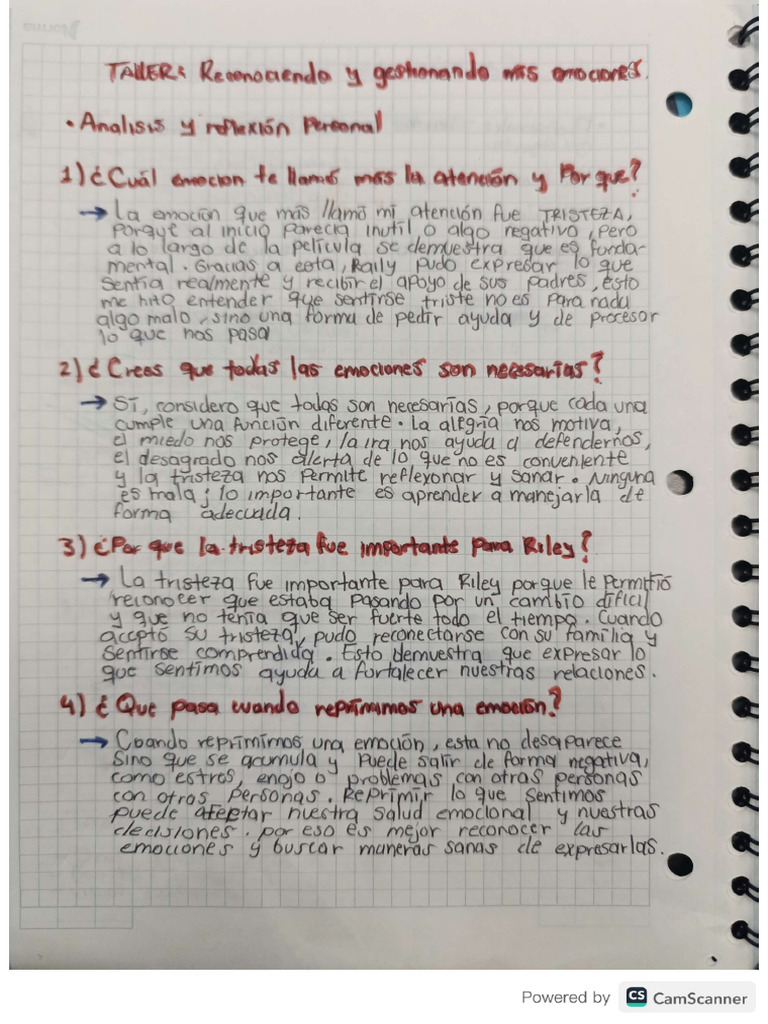 TALLER: Reconociendo y gestionando mis emociones.
• Analisis y reflexión Personal
1) ¿Cuál emocion te llamó más la atención y Por que?
→ La emoción que más llamó mi atención fue TRISTEZA,
Porque al inicio parecia inutil o algo negativo, pero
a lo largo de la película se demuestra que es funda-
mental. Gracias a esta, Raily pudo expresar lo que
sentia realmente y recibir el apoyo de sus padres, esto
me hizo entender que sentirse triste no es Para nada
algo malo, sino una forma de pedir ayuda y de procesar
lo que nos pasa
2) ¿Crees que todas las emociones son necesarias?
→ Sí, considero que todas son necesarias, porque cada una
cumple una función diferente. La alegría nos motiva,
el miedo nos protege, la ira nos ayuda a defendernos,
el desagrado nos alerta de lo que no es conveniente
y la tristeza nos Permite reflexonar y sanar. Ninguna
es mala; lo importante es aprender a manejarla de
forma adecuada.
3) ¿Por que la tristeza fue importante para Riley?
→ La tristeza fue importante para Riley porque le Permitió
reconocer que estaba Pasando por un cambio difícil
y que no tenia que ser fuerte todo el tiempo. Cuando
aceptó su tristeza, pudo reconectarse con su familia y
sentirse comprendida. Esto demuestra que expresar lo
que sentimos ayuda a fortalecer nuestras relaciones.
4) ¿Que pasa cuando reprimimos una emoción?
→ Cuando reprimimos una emoción, esta no desaparece
Sino que se acumula y Puede salir de forma negativa,
como estres, enojo o problemas con otras personas
con otras Personas. Reprimir lo que sentimos
puede afeptar nuestra salud emocional y nuestras
decisiones. por eso es mejor reconocer las
emociones y buscar maneras sanas de expresarlas.
Powered by CS CamScanner